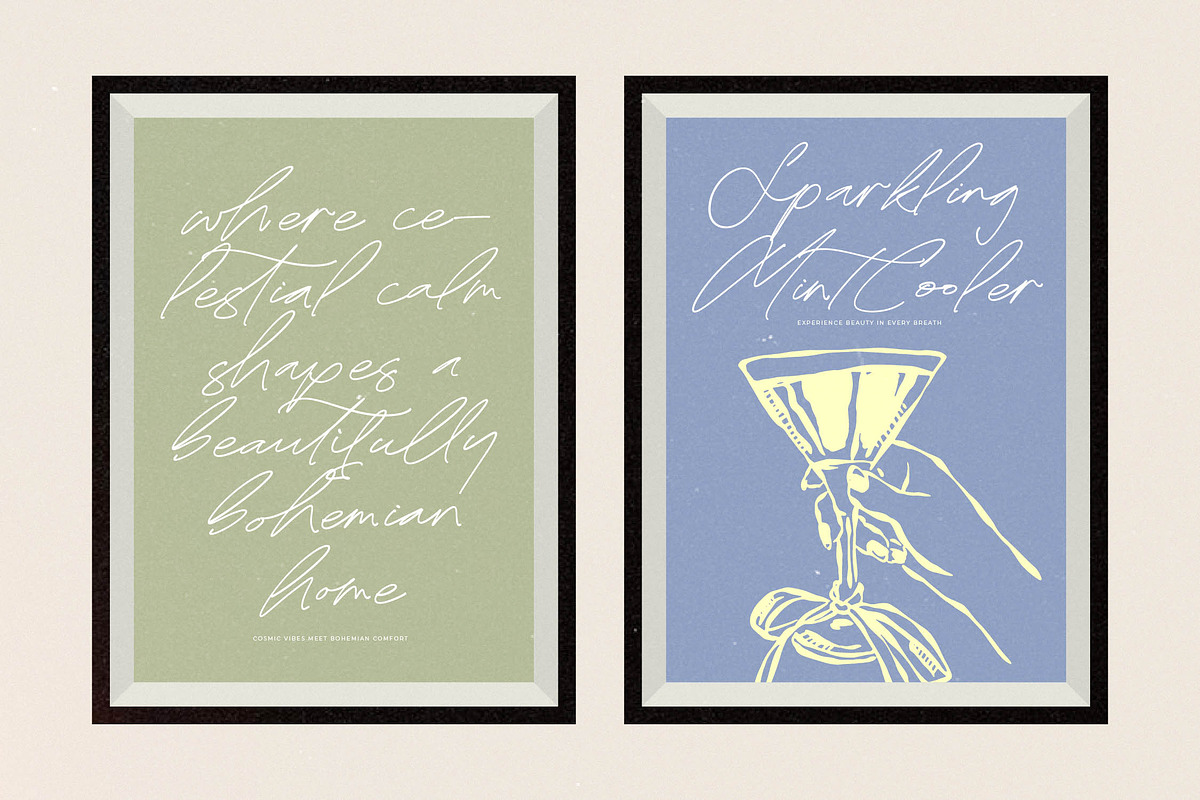 where ce-
lestial calm
shapes a
beautifully
bohemian
home
COSMIC VIBES MEET BOHEMIAN COMFORT
Sparkling
Mint Cooler
EXPERIENCE BEAUTY IN EVERY BREATH